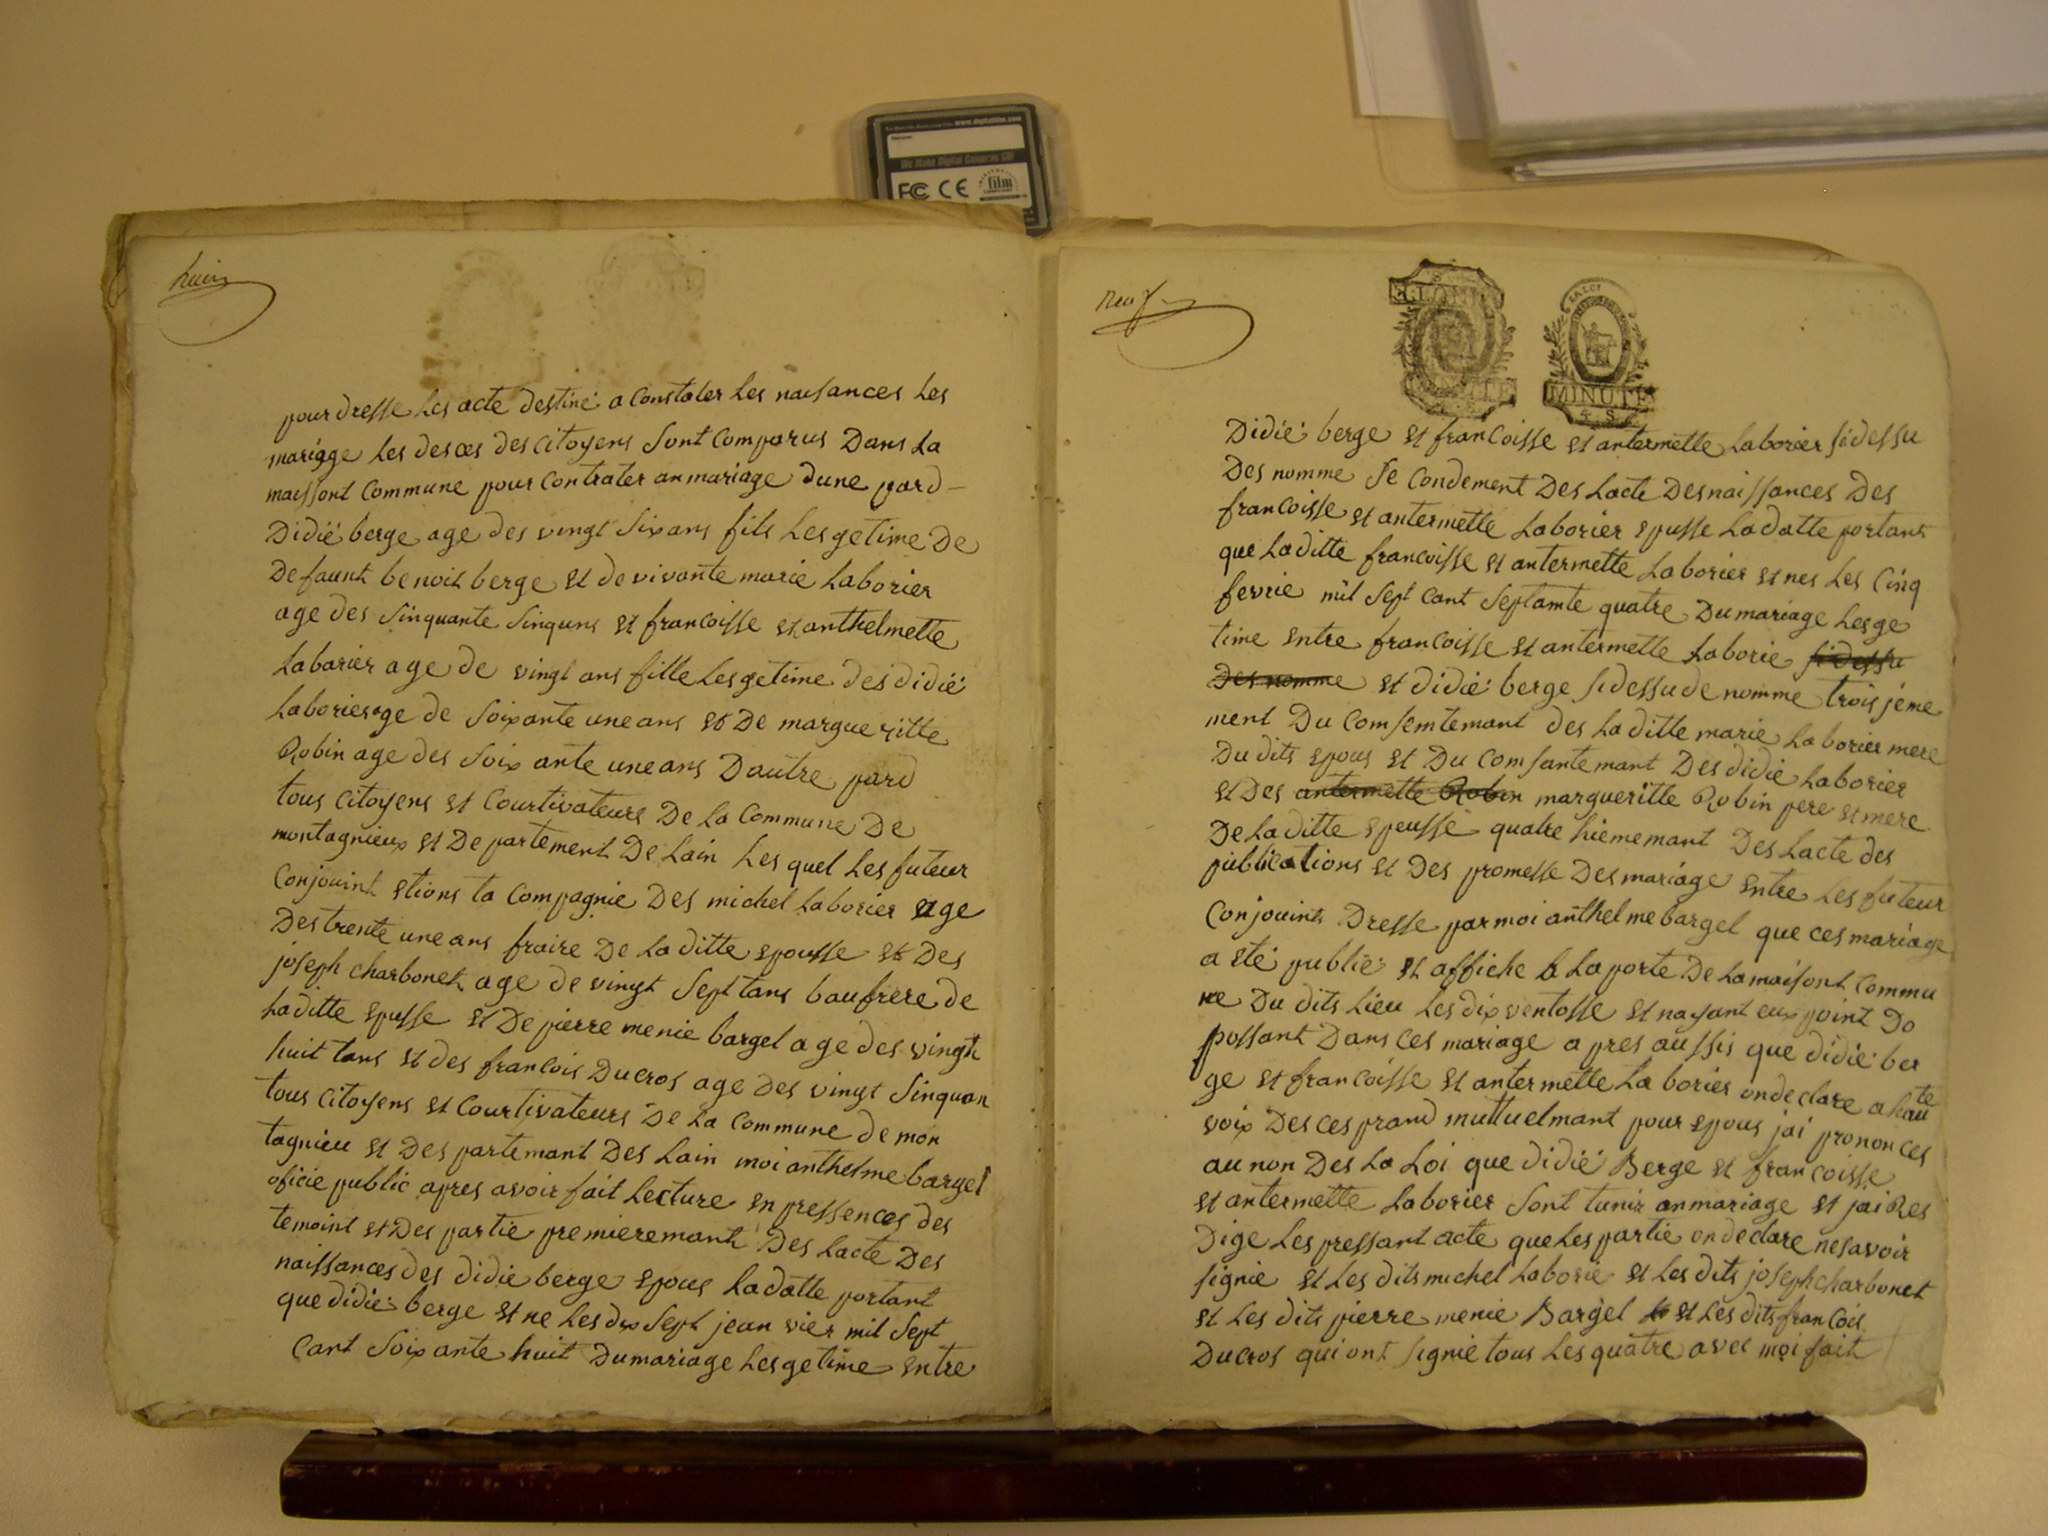 www.digitalfilm.com
We Make Digital Cameras GO!
FC CE film
huit
pour dresse les acte destiné a Constater les naisances Les
mariage Les desces des citoyens Sont Comparus Dans La
maissont Commune pour Contrater an mariage dune pard
Didié berge age des vingt six ans fils Lesgetime De
Defaunt benoit berge et de vivante marie Laborier
age des sinquante sinquns et francoisse et anthelmette
Laborier age de vingt ans fille Lesgetime des didié
Laborier age de soixante une ans et De margueritte
Robin age des soix ante une ans Dautre pard
tous Citoyens et Courtivateurs De La Commune De
montagnieux et Departement De Lain Les quel Les futeur
Conjouint etions ta Compagnie Des michel Laborier age
Des trente une ans fraire De La ditte epousse et Des
joseph charbonet age de vingt sept tans baufrere de
La ditte epusse et De pierre menie bargel age des vingt
huit tans et des francois Ducros age Des vingt sinquan
tous Citoyens et Courtivateurs De La Commune de mon
tagnieu et Des partemant Des Lain moi anthelme bargel
oficie public apres avoir fait Lecture en pressences des
temoint et Des partie premieremant Des Lacte Des
naissances des didie berge epous La datte portant
que didié berge et ne Les dix sept jean vier mil sept
Cant soix ante huit Du mariage Lesgetime entre
neuf
LA LOI
MINUTE
4. S
Didié berge et francoisse et antermette Laborier sidessu
Des nomme se Condement Des Lacte Des naissances Des
francoisse et antermette Laborier epusse La datte portant
que La ditte francoisse et antermette Laborier et nes Les Cinq
fevrie mil sept Cant septamte quatre Du mariage Lesge
time entre francoisse et antermette Laborie sidessu
Des nomme et didié berge sidessu de nomme trois jeme
ment Du Comsemtemant des La ditte marie Laborier mere
Du dits epous et Du Comsantemant Des didié Laborier
et Des antermette Robin margueritte Robin pere et mere
De La ditte epeusse quatre hiememant Des Lacte des
publications et Des promesse Des mariage entre Les futeur
Conjouint Dresse par moi anthelme bargel que ces mariage
a eté publié et affiche a La porte De La maisont Commu
ne Du dits Lieu Les dix ventosse et nayant eux point Do
possant Dans Ces mariage apres aussis que didié ber
ge et francoisse et antermette Laborier onde clare a haute
voix Des ces prand muttuelmant pour epous jai prononces
au non Des La Loi que didié Berge et francoisse
et antermette Laborier sont tunir an mariage et jai Res
Dige Les pressant acte que Les partie on de clare nesavoir
signie et Les dits michel Laborie et Les dits joseph charbonet
et Les dits pierre menie Bargel et Les dits francois
Ducros qui ont signie tous Les quatre avec moi fait